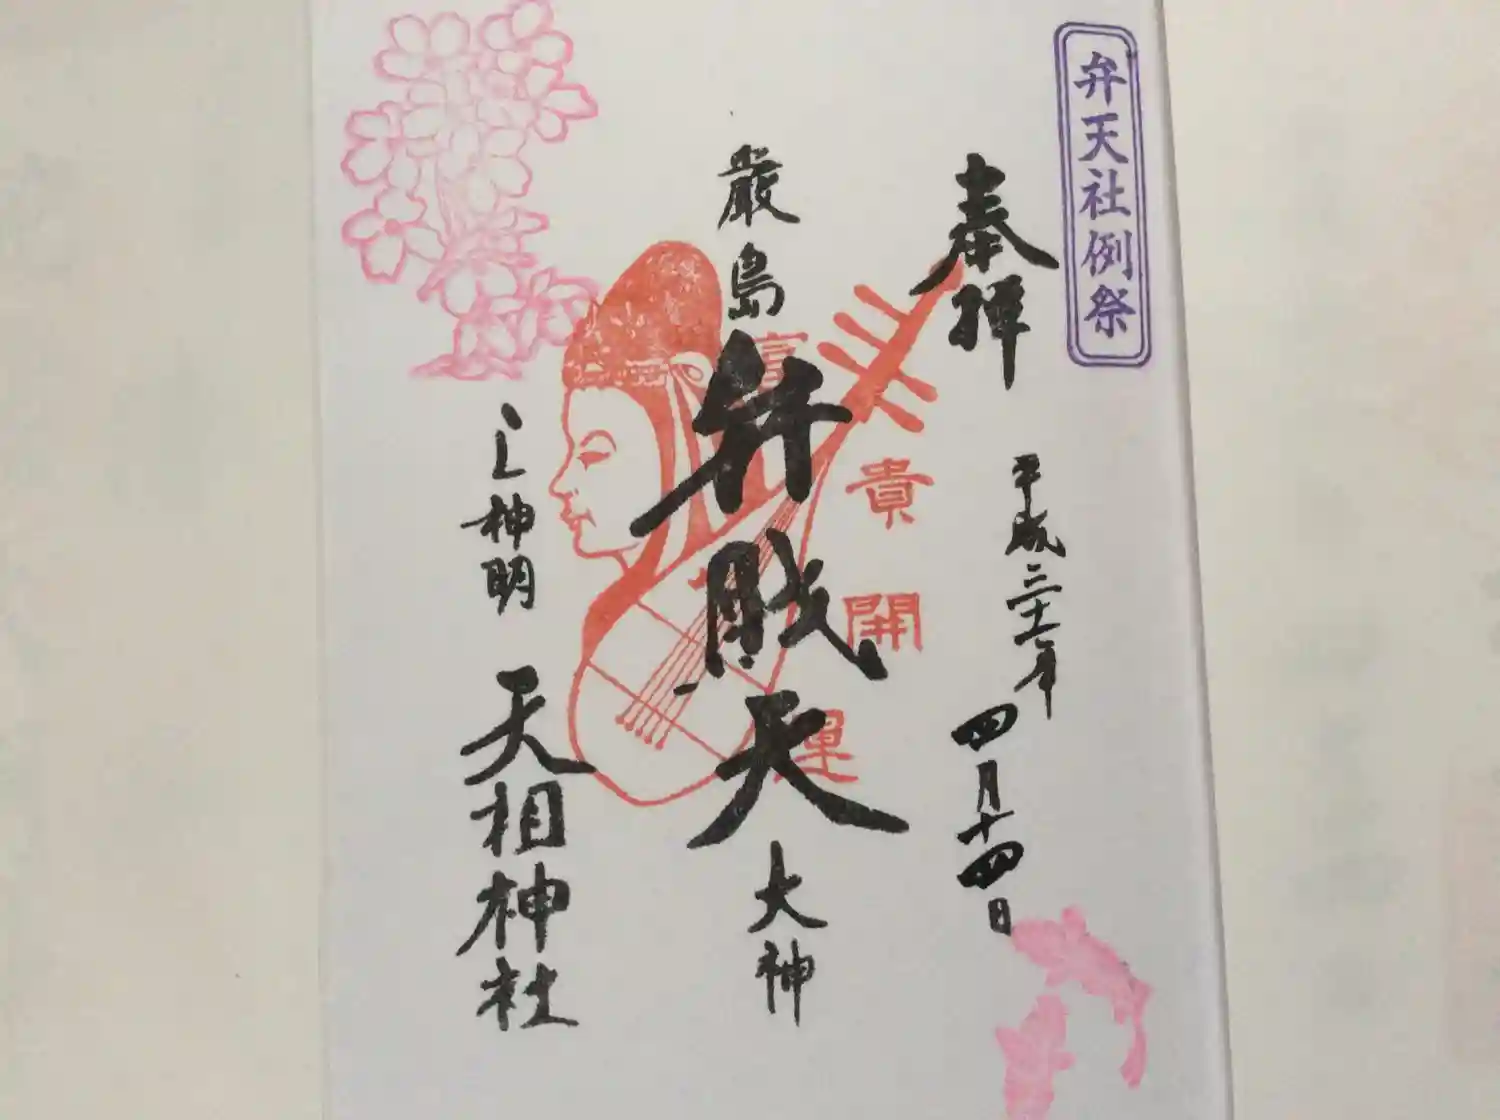 弁天社例祭
奉拝
平成三十一年四月十四日
富貴開運
厳島弁財天大神
下神明天祖神社